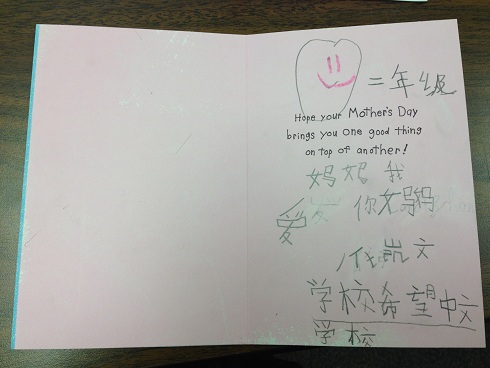 二年级
Hope your Mother's Day
brings you one good thing
on top of another!
妈妈我
爱你妈妈
凯文
学校希望中文
学校